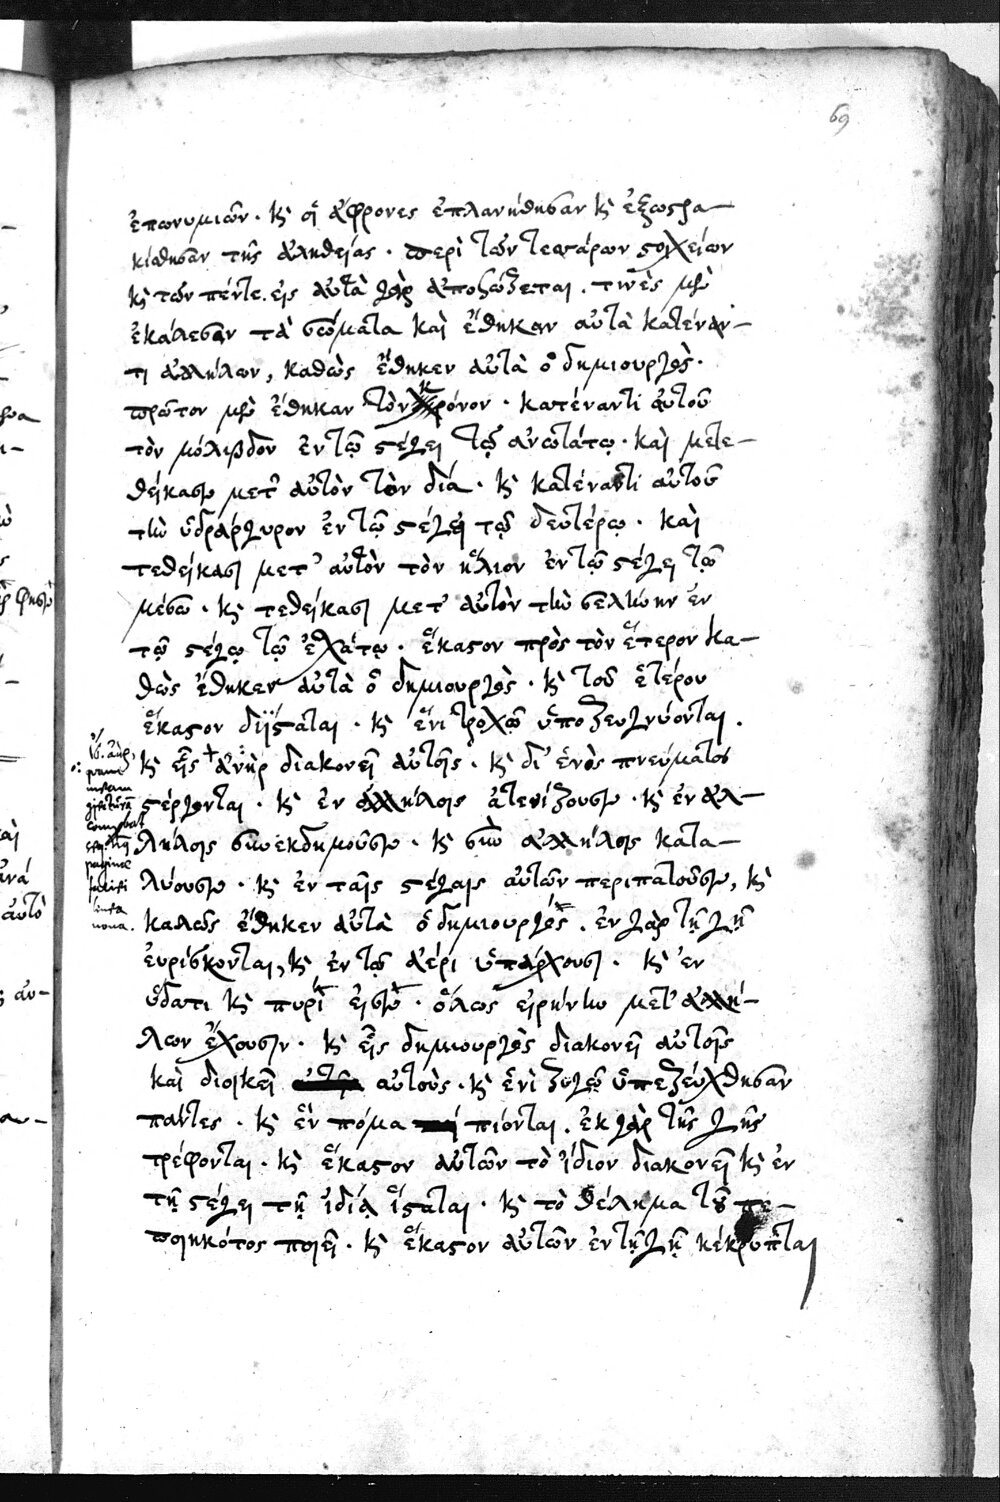 69
ἐπωνυμιῶν · κὶ οἱ ἄφρονες ἐπλανήθησαν κὶ ἐξωστρα—
κίσθησαν τῆς ἀληθείας · περὶ τῶν τεσσάρων στοιχείων
κὶ τῶν πέντε. εἰς αὐτὰ γὰρ ἀποβιβάζεται. τινὲς μὲν
ἐκάλεσαν τὰ σώματα καὶ ἔθηκαν αὐτὰ κατέναν—
τι ἀλλήλων, καθὼς ἔθηκεν αὐτὰ ὁ δημιουργὸς·
πρῶτον μὲν ἔθηκαν τὸν κρόνον · κατέναντι αὐτοῦ
τὸν μόλιβδον ἐν τῷ στέγει τῷ ἀνωτάτῳ · καὶ μετε—
θείκασιν μετ' αὐτὸν τὸν δία · κὶ κατέναντι αὐτοῦ
τὴν ὑδράργυρον ἐν τῷ στέγει τῷ δευτέρῳ · καὶ
τεθείκασι μετ' αὐτὸν τὸν ἥλιον ἐν τῷ στέγει τῷ
μέσῳ · κὶ τεθείκασι μετ' αὐτὸν τὴν σελήνην ἐν
τῷ στέγῳ τῷ ἐσχάτῳ · ἕκαστον πρὸς τὸν ἕτερον κα—
θὼς ἔθηκεν αὐτὰ ὁ δημιουργὸς · κὶ τοῦ ἑτέρου
ἕκαστον διΐσταται · κὶ ἑνὶ τροχῷ ὑποζευγνύονται.
κὶ εἷς + ἀνὴρ διακονεῖ αὐτοῖς · κὶ δι' ἑνὸς πνεύματος
στέργονται · κὶ ἐν ἀλλήλοις ἀτενίζουσιν · κὶ ἐν ἀλ—
λήλοις συνεκδημοῦσιν · κὶ σὺν ἀλλήλοις κατα—
λύουσιν · κὶ ἐν ταῖς στέγαις αὐτῶν περιπατοῦσιν, κὶ
καλῶς ἔθηκεν αὐτὰ ὁ δημιουργός · ἐν γὰρ τῇ γῇ
εὑρίσκονται, κὶ ἐν τῷ ἀέρι ὑπάρχουσι · κὶ ἐν
ὕδατι κὶ πυρὶ εἰσὶν · ὅλως εἰρήνην μετ' ἀλλή—
λων ἔχουσιν · κὶ εἷς δημιουργὸς διακονεῖ αὐτοῖς
καὶ διοικεῖ αὐτοὺς · κὶ ἑνὶ ζυγῷ ὑπεζεύχθησαν
πάντες · κὶ ἓν πόμα πίονται. ἐκ γὰρ τῆς γῆς
τρέφονται · κὶ ἕκαστον αὐτῶν τὸ ἴδιον διακονεῖ κὶ ἐν
τῇ στέγει τῇ ἰδίᾳ ἵσταται · κὶ τὸ θέλημα τοῦ πε—
ποιηκότος ποιεῖ · κὶ ἕκαστον αὐτῶν ἐν τῇ γῇ κέκρυπται